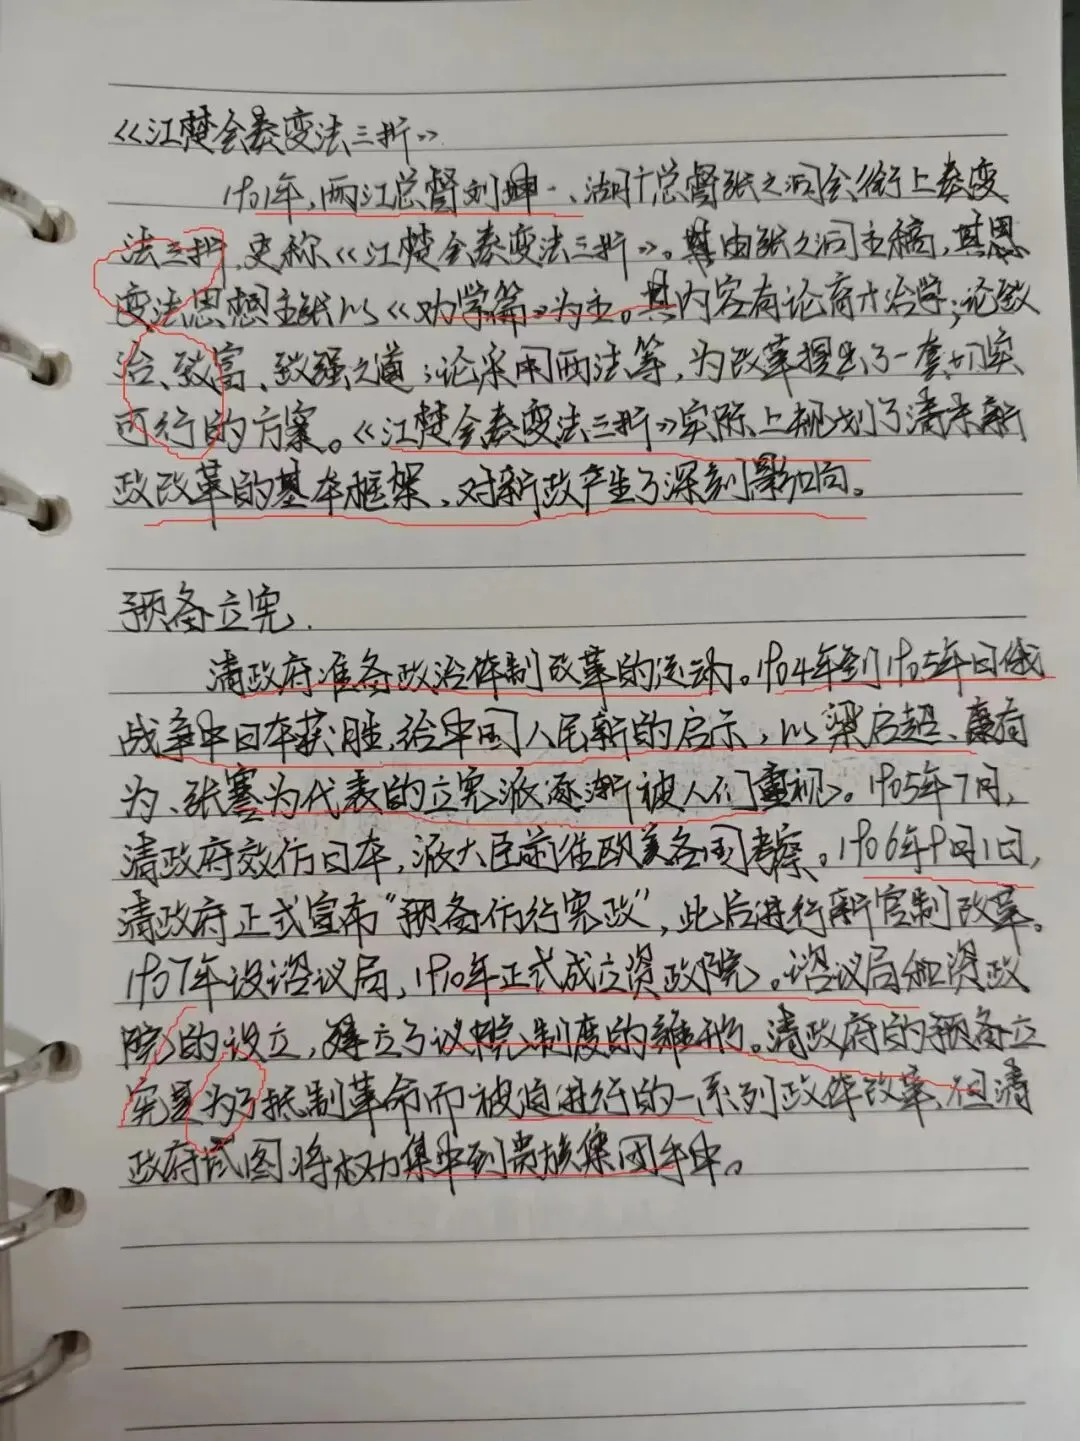 《江楚会奏变法三折》
1901年，两江总督刘坤一、湖广总督张之洞会衔上奏变
法三折，史称《江楚会奏变法三折》。其由张之洞主稿，其思
变法思想主张以《劝学篇》为主。其内容有论育才治学；论致
治、致富、致强之道；论采用西法等，为改革提出了一套切实
可行的方案。《江楚会奏变法三折》实际上规划了清末新
政改革的基本框架，对新政产生了深刻影响。
预备立宪.
清政府准备政治体制改革的运动。1904年到1905年日俄
战争中日本获胜，给中国人民新的启示，以梁启超、康有
为、张謇为代表的立宪派逐渐被人们重视。1905年7月，
清政府效仿日本，派大臣前往欧美各国考察。1906年9月1日，
清政府正式宣布“预备仿行宪政”，此后进行新官制改革。
1907年设谘议局，1910年正式成立资政院。谘议局和资政
院的设立，建立了议院制度的雏形。清政府的预备立
宪是为了抵制革命而被迫进行的一系列政体改革，但清
政府试图将权力集中到贵族集团手中。